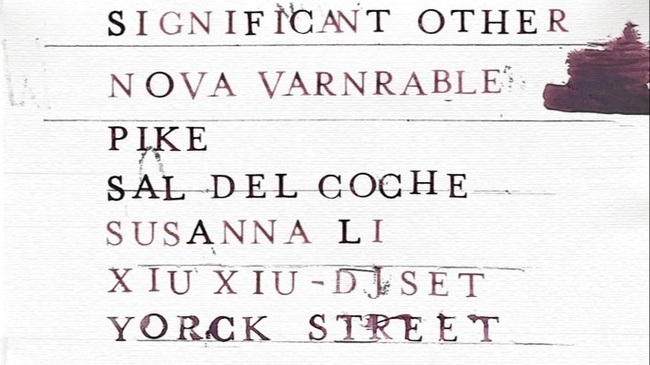 SIGNIFICANT OTHER
NOVA VARNRABLE
PIKE
SAL DEL COCHE
SUSANNA LI
XIU XIU - DJ SET
YORCK STREET